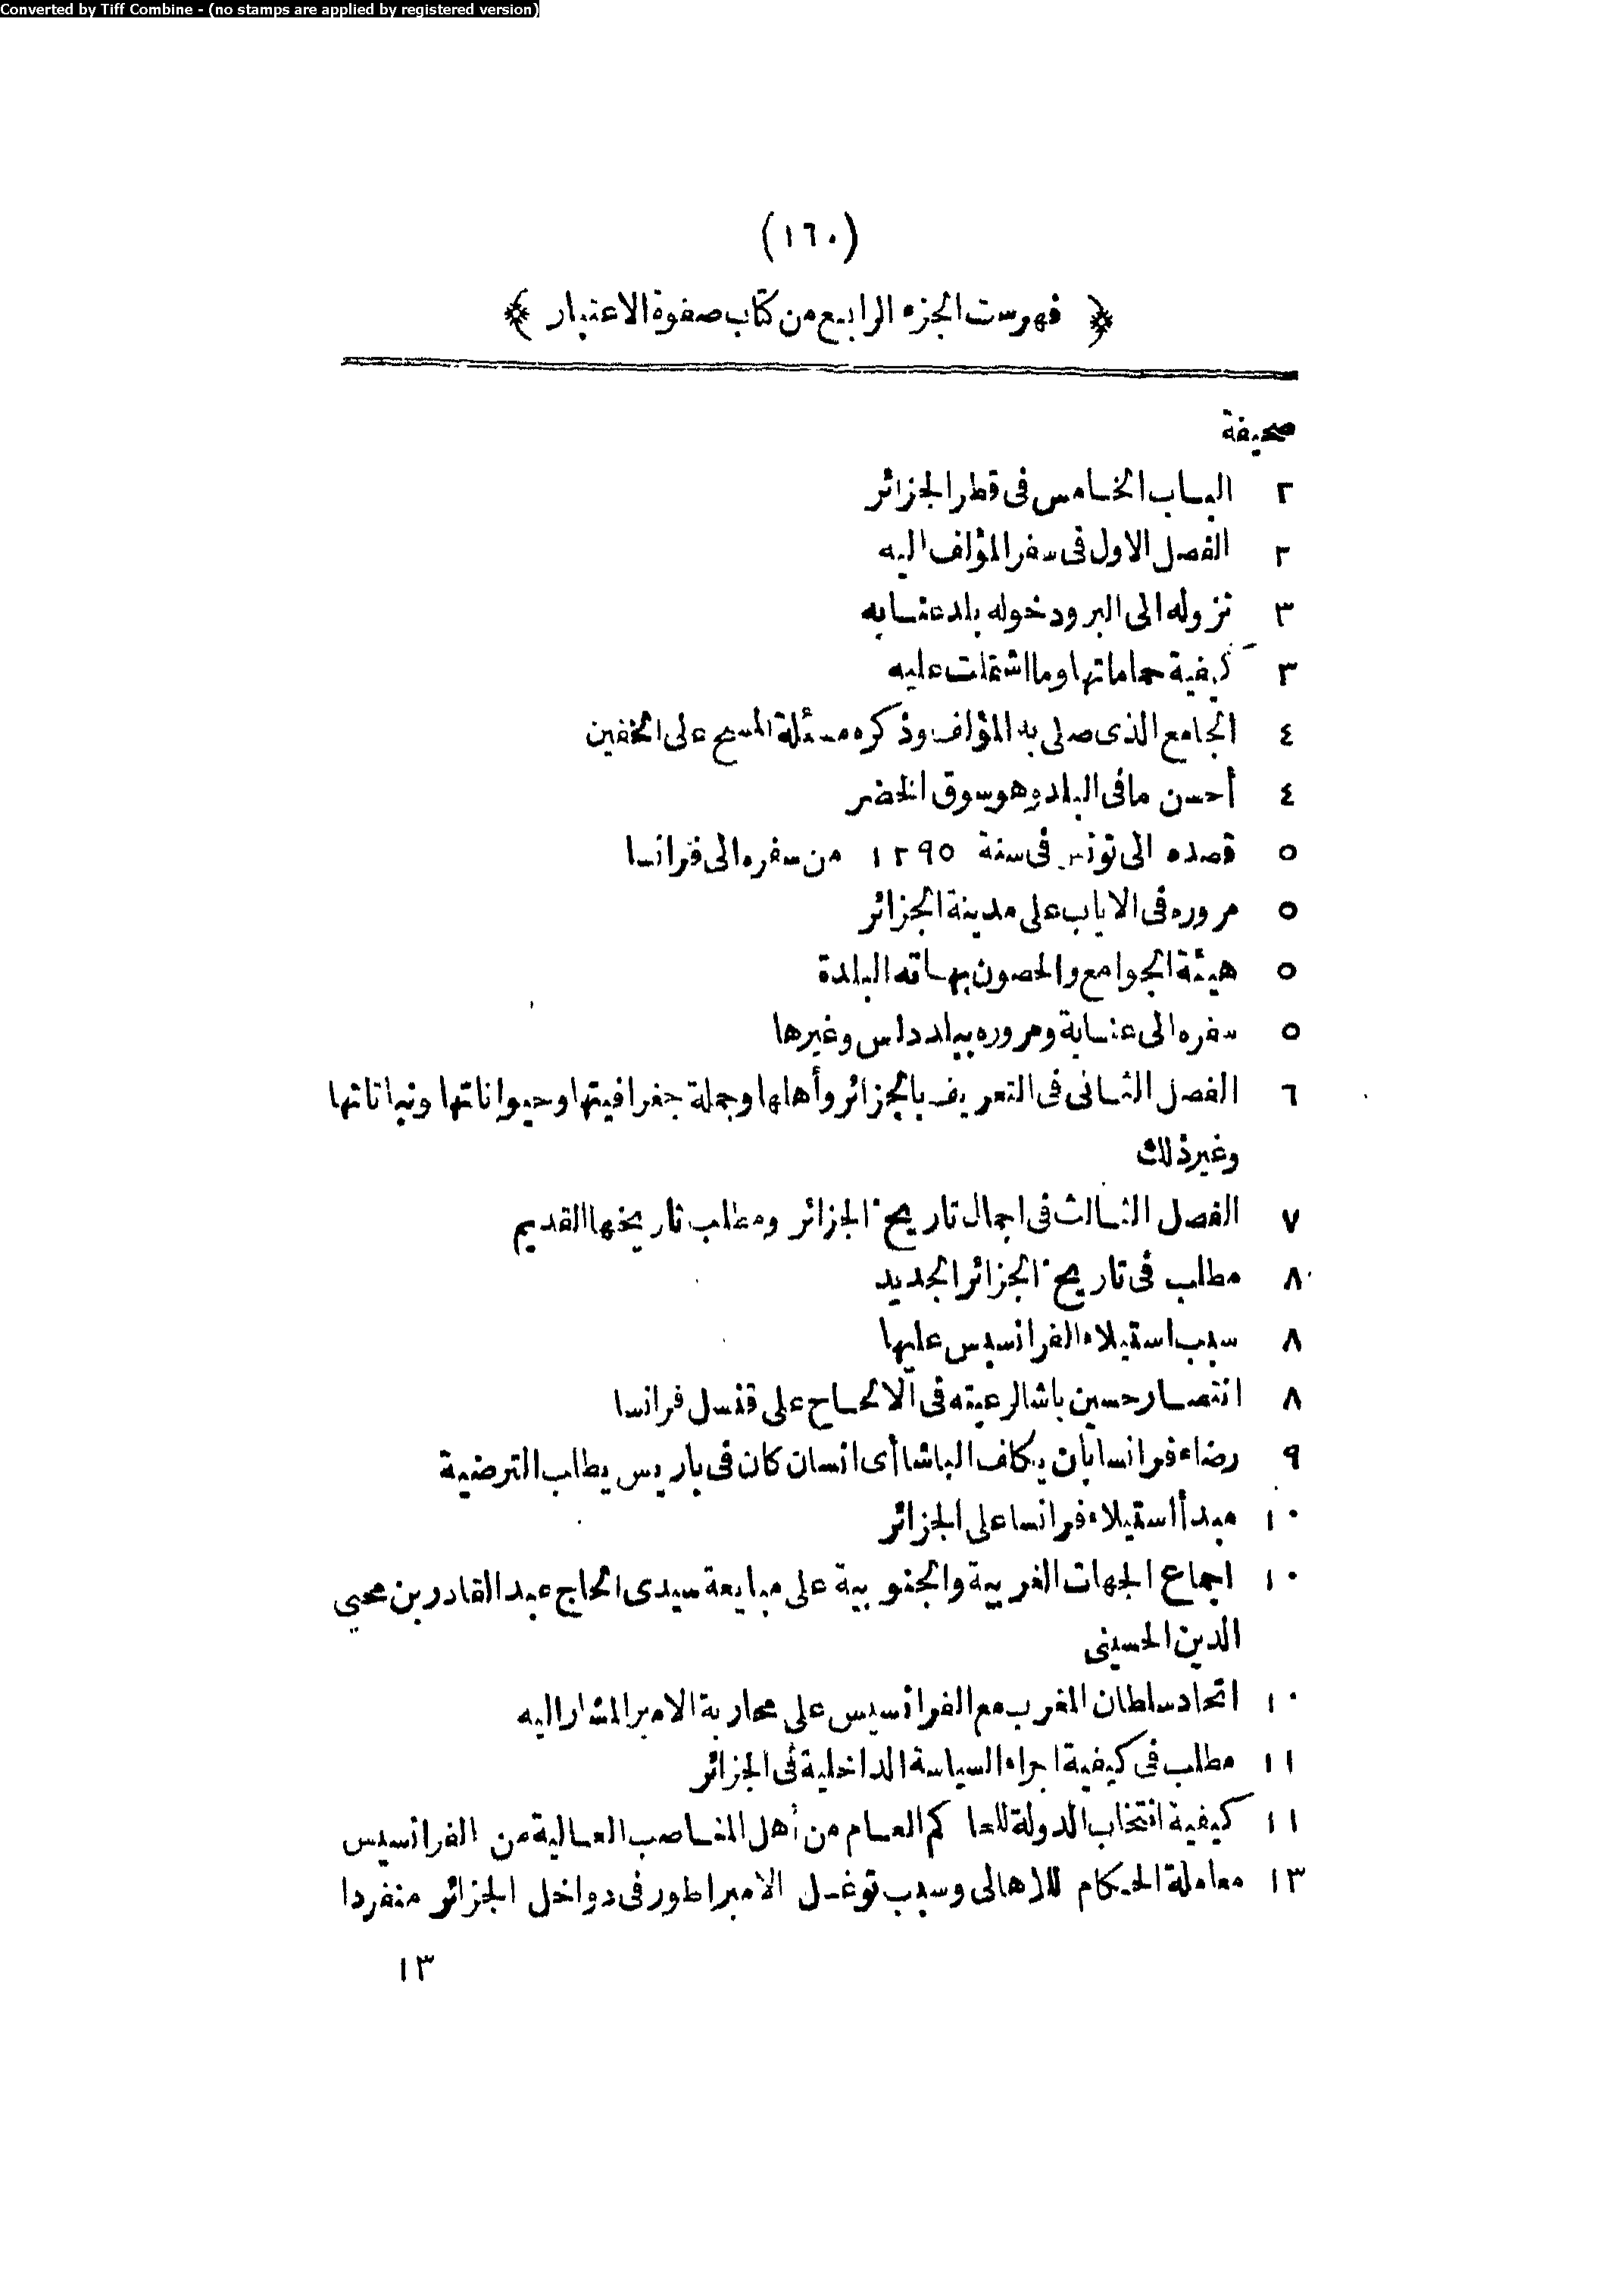 Converted by Tiff Combine - (no stamps are applied by registered version)
(١٦٠)
﴿ فهرست الجزء الرابع من كتاب صفوة الاعتبار ﴾
صحيفة
٢ الباب الخامس فى قطر الجزائر
٢ الفصل الاول فى سفر المؤلف اليه
٣ نزوله الى البر ودخوله بلد عنابه
٣ كيفية حماماتها وما اشتملت عليه
٤ الجامع الذى صلى به المؤلف وذكره مسئلة المسح على الخفين
٤ أحسن مافى البلد وهو سوق الخضر
٥ قصده الى تونس فى سنة ١٢٩٥ من سفره الى فرانسا
٥ مروره فى الاياب على مدينة الجزائر
٥ هيئة الجوامع والحصون بهاته البلدة
٥ سفره الى عنابة ومروره ببلد دلس وغيرها
٦ الفصل الثانى فى التعريف بالجزائر وأهلها وجملة جغرافيتها وحيواناتها ونباتاتها
وغير ذلك
٧ الفصل الثالث فى اجمال تاريخ الجزائر ومطلب تاريخها القديم
٨ مطلب فى تاريخ الجزائر الجديد
٨ سبب استيلاء الفرانسيس عليها
٨ انتصار حسين باشا لرعيته فى الالحاح على قنسل فرانسا
٩ رضاء فرانسا بأن يكلف الباشا أى انسان كان فى باريس يطلب الترضية
١٠ مبدأ استيلاء فرانسا على الجزائر
١٠ اجماع الجهات الغربية والجنوبية على مبايعة سيدى الحاج عبد القادر بن محيي
الدين الحسينى
١٠ اتحاد سلطان المغرب مع الفرانسيس على محاربة الامير المشار اليه
١١ مطلب فى كيفية اجراء السياسة الداخلية فى الجزائر
١١ كيفية انتخاب الدولة للحاكم العام من أهل المناصب العالية من الفرانسيس
١٣ معاملة الحكام للاهالى وسبب توغل الامبراطور فى دواخل الجزائر منفردا
١٣